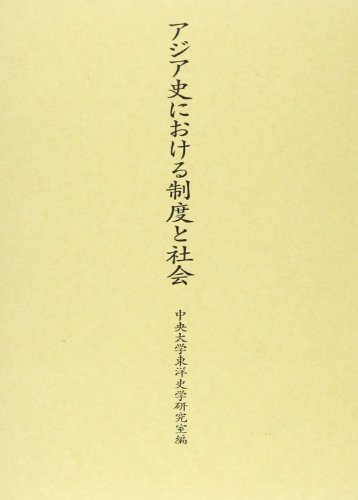 アジア史における制度と社会
中央大学東洋史学研究室編